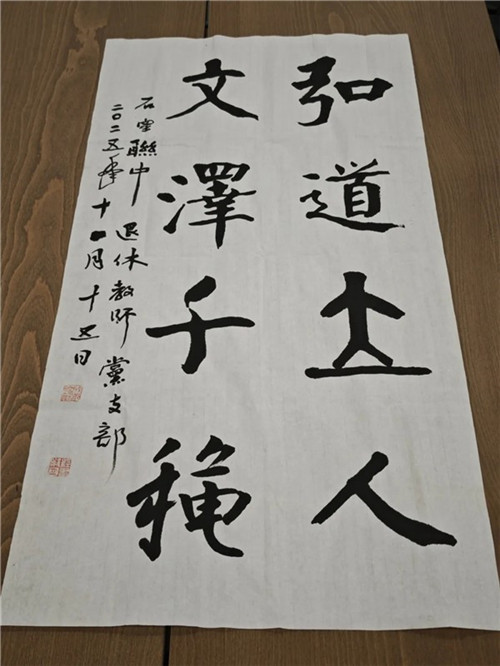 弘道立人
文澤千穐
石室聯中退休教師黨支部
二〇二五年十一月十五日